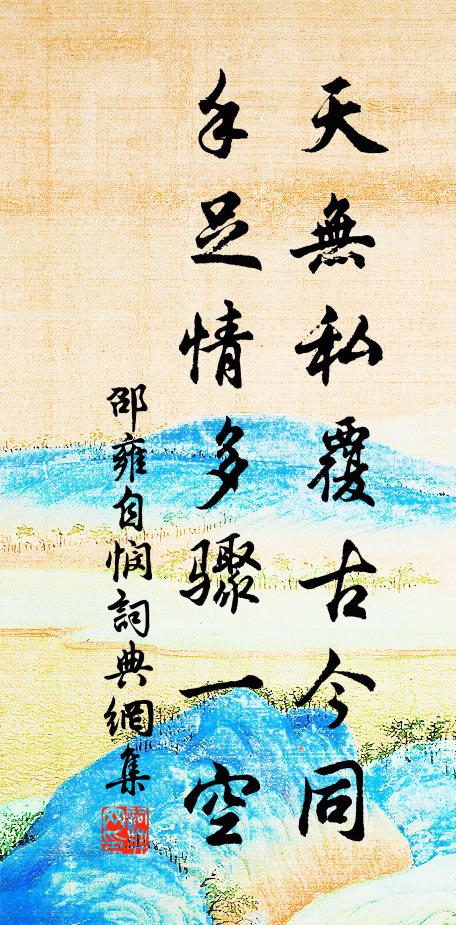 天無私覆古今同
手足情多驟一空
邵雍自憫詞典網集